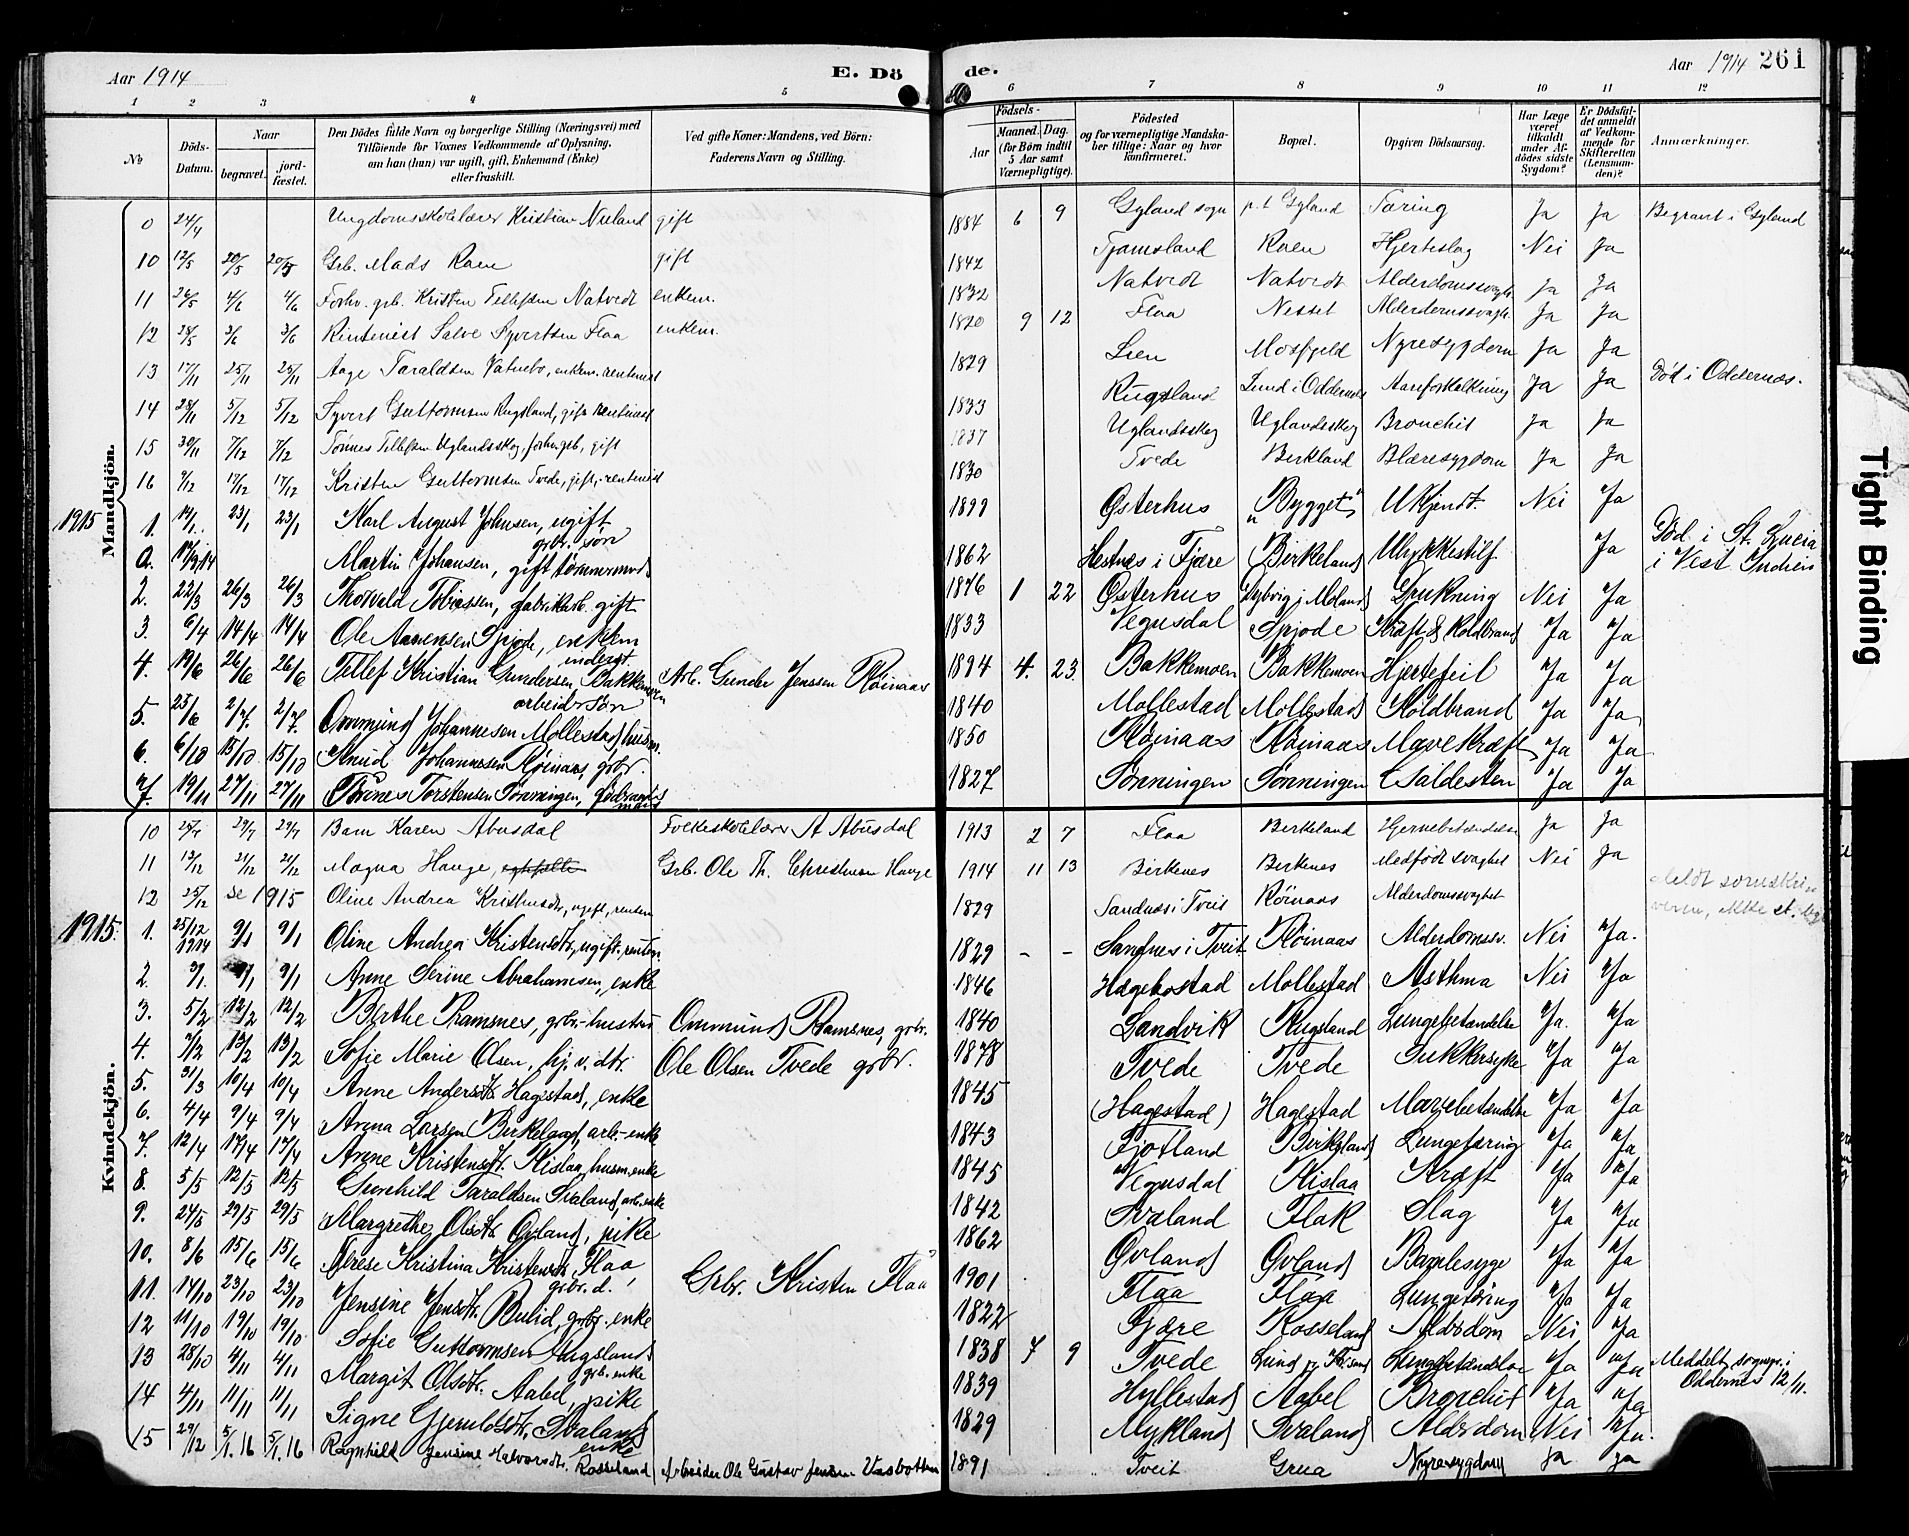 Aar 1914
E. Dö
de.
Aar 1914 261
1 2 3 4 5 6 7 8 9 10 11 12
№
Döds-Datum.
Naar
begravet.
jord-fæstet.
Den Dödes fulde Navn og borgerlige Stilling (Næringsvei) med
Tilföiende for Voxnes Vedkommende af Oplysning,
om han (hun) var ugift, gift, Enkemand (Enke)
eller fraskilt.
Ved gifte Koner: Mandens, ved Börn:
Faderens Navn og Stilling.
Födsels-
Aar
Maaned. Dag.
(for Börn indtil
5 Aar samt
Værnepligtige).
Födested
og for værnepligtige Mandska-
ber tillige: Naar og hvor
konfirmeret.
Bopæl.
Opgiven Dödsaarsag.
Har Læge
været
tilkaldt
under Af-
dödes sidste
Sygdom?
Er Dödsfal-
det anmeldt
af Vedkom-
mende for
Skifteretten
(Lensman-
den)?
Anmærkninger.
Mandkjön.
0 24/4 Ungdomsskolelærer Kristian Nuland gift 1884 6 9 Gyland sogn p.t. Gyland Tæring Ja Ja Begravt i Gyland
10 12/5 20/5 20/5 Grb. Mads Raen gift 1842 Tjomsland Raen Hjerteslag Nei Ja
11 26/5 4/6 4/6 Forhv. grb. Kristen Tellefsen Natvedt enkem. 1832 Natvedt Natvedt Alderdomssvagh. Ja Ja
12 28/5 3/6 3/6 Rentenist Salve Syvertsen Flaa enkem. 1820 9 12 Flaa Nesset Alderdomssvagh. Ja Ja
13 17/11 25/11 25/11 Aage Taraldsen Vatnebo, enkem. rentenist 1829 Lien Mosfjeld Nyresygdom Ja Ja
14 28/11 5/12 5/12 Syvert Guttormsen Rugsland, gift rentenist 1833 Rugsland Lund i Oddernes Aareforkalkning Ja Ja Död i Oddernæs.
15 30/11 7/12 7/12 Tönnes Tellefsen Uglandsskog, forhv. grb., gift 1837 Uglandsskog Uglandsskog Bronchit Ja Ja
16 9/12 17/12 17/12 Kristen Guttormsen Tvede, gift, rentenist 1830 Tvede Birkland Blæresygdom Ja Ja
1915 1. 14/1 23/1 23/1 Karl August Johnsen, ugift grbr. søn 1899 Østerhus "Bygget" Ukjendt. Nei Ja
a. 17/9 14 Martin Johansen, gift tømmermand 1862 Hestnes i Fjære Birkeland Ulykkestilf Ja Död i St. Lucia i Vest Indien
2. 22/3 26/3 26/3 Thorvald Tobiassen, fabrikarb. gift 1876 1 22 Østerhus Dybvig i Moland Drukning Nei Ja
3. 6/4 14/4 14/4 Ole Aanensen Spjode, enkem underst. 1833 Vegusdal Spjode Kræft & Koldbrand Ja Ja
4. 19/6 26/6 26/6 Tellef Kristian Gundersen Bakkemoen arbeidssøn Arb. Gunder Jenssen Røinaas 1894 4. 23. Bakkemoen Bakkemoen Hjertefeil Ja Ja
5. 25/6 2/7. 2/7. Ommund Johannesen Mollestad, husm. 1840 Mollestad Mollestad Koldbrand Ja Ja
6. 6/10 15/10 15/10 Knud Johannesen Røinaas, grbr. 1850 Røinaas Røinaas Mavekræft Ja Ja
7. 19/11 27/11 27/11 Tønnes Torstensen Tønningen, föderaadsmand 1827 Tønningen Tønningen Galdesten Ja Ja
Kvindekjön.
10 24/7 29/7 29/7 Barn Karen Abusdal Folkeskolelærer A Abusdal 1913 2 7 Flaa Birkeland Hjernebetændelse Ja Ja
11 13/12 21/12 21/12 Magna Hauge, Grb. Ole Th. Christensen Hauge 1914 11 13 Birkenes Birkenes Medfødt svaghet Nei Ja
12 25/12 se 1915 Oline Andrea Kristensdtr., ugift, renten 1829 Sandnes i Tveit Røinaas Alderdomssvaghet Meldt
1915. 1. 25/12 1914 9/1 9/1 Oline Andrea Kristensdtr, ugift. renten. 1829 - - Sandnes i Tveit Røinaas Alderdomssv. Nei Ja.
2. 3/1 9/1 9/1 Anne Serine Abrahamsen, enke 1846 Hægebostad Mollestad Asthma Nei Ja
3. 5/2 12/2 12/2 Berthe Ramsnes, grbr.-hustru Ommund Ramsnes, grbr. 1840 Sandvik Rugsland Lungebetændelse Ja. Ja
4. 7/2 13/2 13/2 Sofie Marie Olsen, hj. v. dtr. Ole Olsen Tvede grbr. 1878 Tvede Tvede Sukkersyke Ja Ja
5. 31/3 10/4 10/4 Anne Andersdtr Hagestad, enke 1845 (Hagestad) Hagestad Mavebetændelse Ja Ja
6. 4/4 9/4 9/4 Anna Larsen Birkeland, arb.-enke 1843 Fjotland Birkeland Lungetæring Ja Ja
7. 12/4 17/4 17/4 Anne Kristensdtr. Kislaa, husm. enke 1845 Vegusdal Kislaa Kræft Ja Ja
8. 5/5 12/5 12/5 Gunhild Taraldsen Svaland, arb. enke 1842 Svaland Flak Slag Ja Ja
9. 24/5 29/5 29/5 Margrethe Olsdtr Øvland, pike 1862 Øvland Øvland Ja Ja
10. 8/6 15/6 15/6 Terese Kristina Kristensdtr. Flaa grbr. d. Grbr. Kristen Flaa 1901 Flaa Flaa Lungetæring Ja Ja
11. 14/10 23/10 23/10 Jensine Jensdtr. Bulid, grbr. enke 1822 Fjære Rosseland Alderdom Nei Ja
12 11/10 19/10 19/10 Sofie Guttormsen Rugsland grb. enke 1838 7 9 Tvede Lund pr Kr.sand Lungebetændelse Ja Ja Meddelt sognepr. i Oddernes 12/11.
13 28/10 4/11 4/11 Margit Olsdtr. Aabel, pike 1839 Hyllestad Aabel Bronchit Ja Ja
14 4/11 11/11 11/11 Signe Gjeruldsdtr. Svaland enke 1829 Mykland Svaland Alderdom Nei Ja.
15 29/12 5/1. 16 5/1. 16 Ragnhild Jensine Halvorsdtr. Rosseland Arbeider Ole Gustav Jensen Vasbotten 1891 Tveit Grua Nyresygdom Ja Ja
Tight Binding